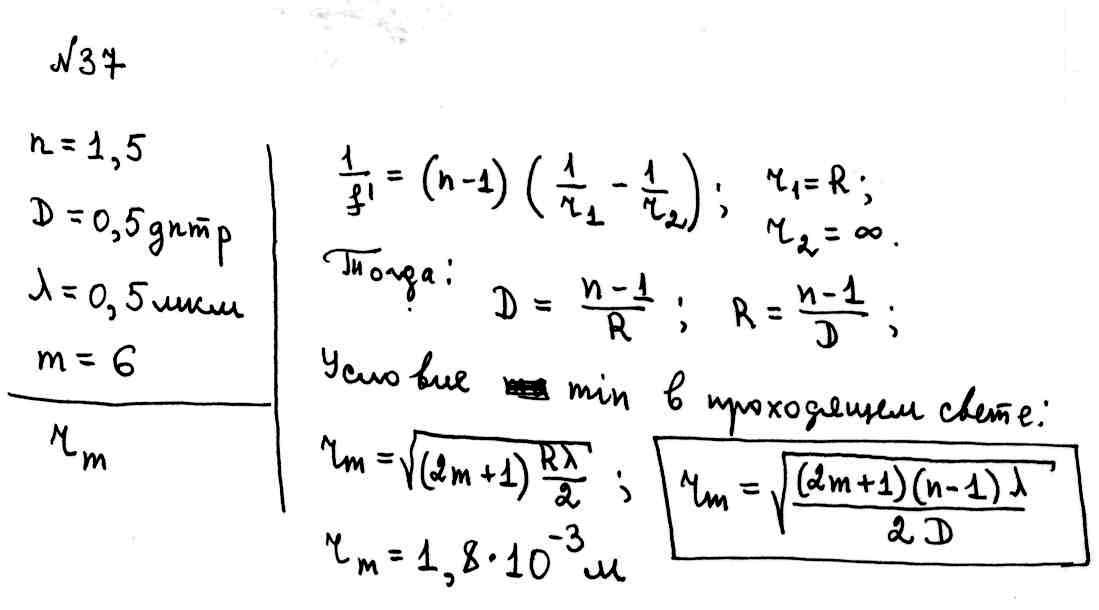 №37
n = 1,5
D = 0,5 дптр
λ = 0,5 мкм
m = 6
r_m
1/f' = (n-1) (1/r_1 - 1/r_2); r_1 = R;
r_2 = ∞.
Тогда:
D = (n-1)/R; R = (n-1)/D;
Условие min в проходящем свете:
r_m = √((2m+1) Rλ/2); r_m = √((2m+1)(n-1)λ/(2D))
r_m = 1,8·10^-3 м